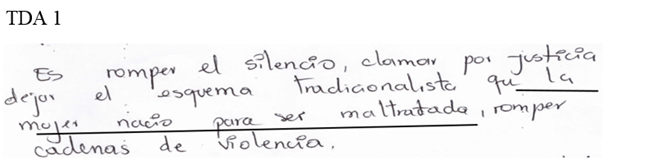 TDA 1
Es romper el silencio, clamar por justicia
dejar el esquema tradicionalista qu la
mujer nacio para ser maltratada, romper
cadenas de violencia.